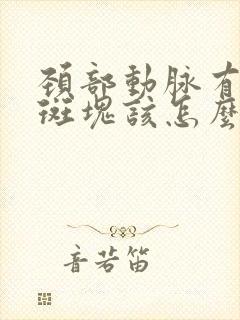 頚部動脉有
斑塊該怎麼
音若笛